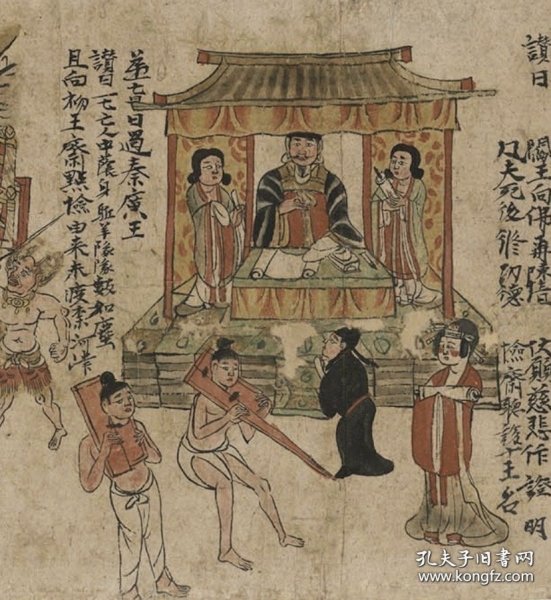 讃曰
閻王向佛再陳情 伏願慈悲作證明
凡夫死後修功德 檢齋聽說十王名
苐七日過秦廣王
讃曰一七亡人中蔭身駈羊隊隊數如塵
且向初王齋點檢由来未渡柰河津
孔夫子旧书网
www.kongfz.com